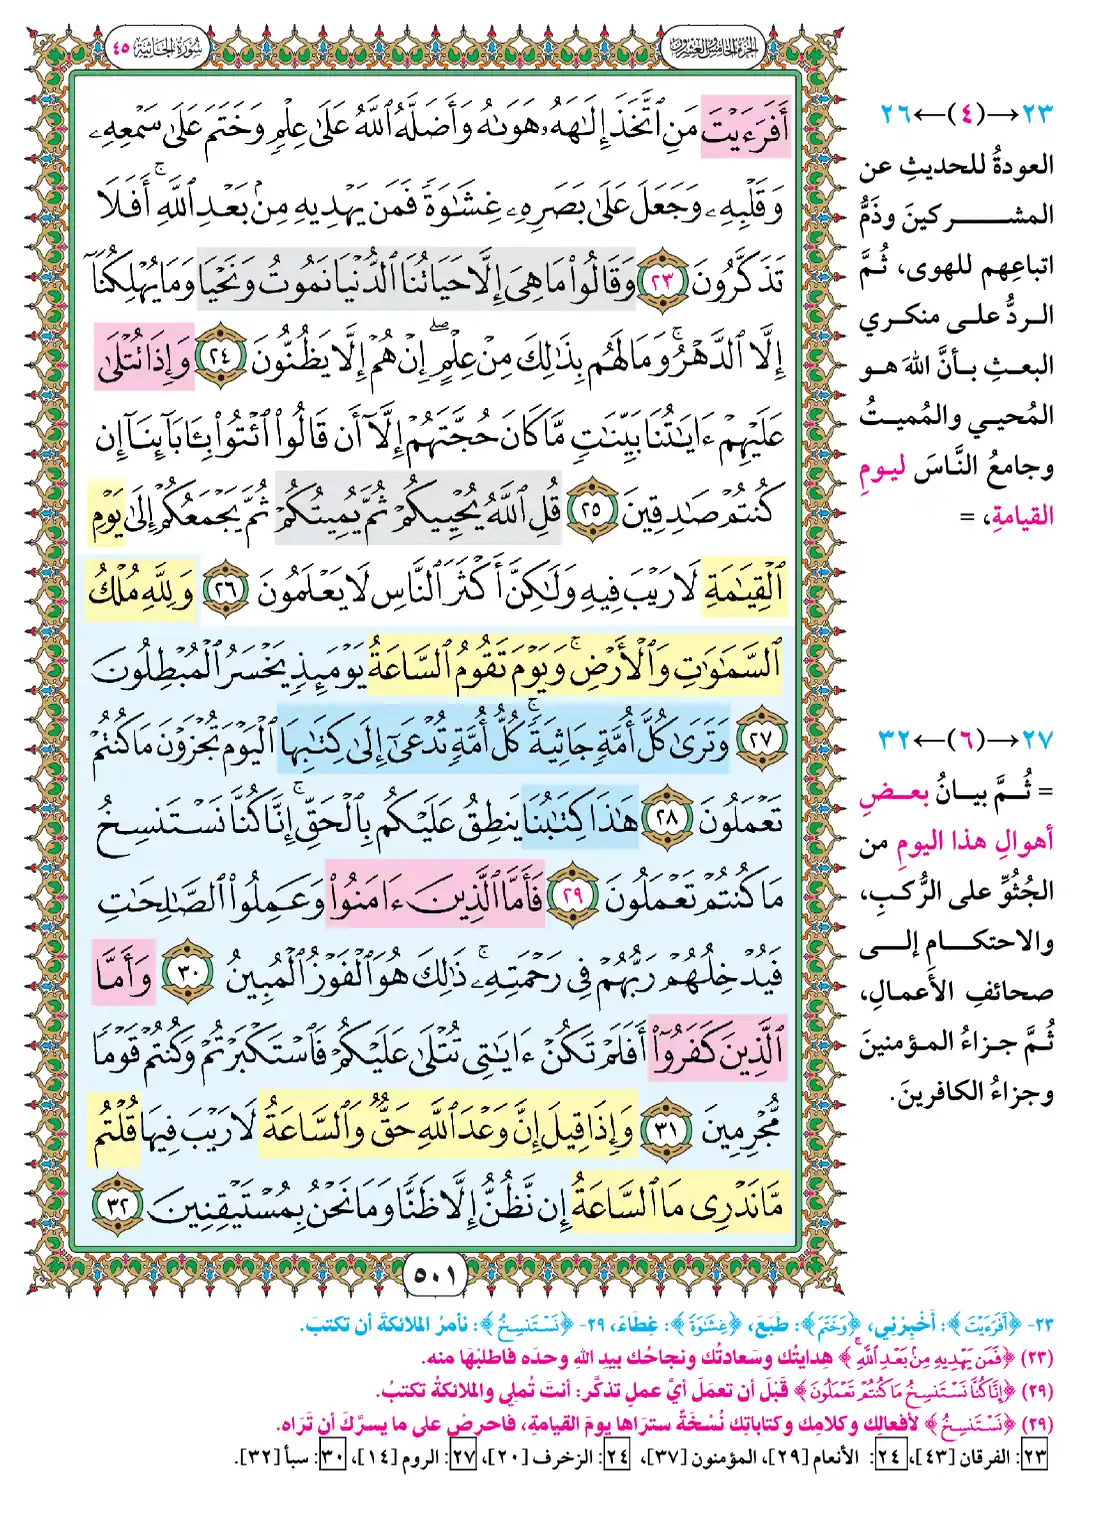 الجزء الخامس والعشرون
سورة الجاثية ٤٥
أَفَرَءَيْتَ مَنِ ٱتَّخَذَ إِلَٰهَهُۥ هَوَىٰهُ وَأَضَلَّهُ ٱللَّهُ عَلَىٰ عِلْمٍ وَخَتَمَ عَلَىٰ سَمْعِهِۦ
وَقَلْبِهِۦ وَجَعَلَ عَلَىٰ بَصَرِهِۦ غِشَٰوَةً فَمَن يَهْدِيهِ مِنۢ بَعْدِ ٱللَّهِ ۚ أَفَلَا
تَذَكَّرُونَ ٢٣ وَقَالُوا۟ مَا هِىَ إِلَّا حَيَاتُنَا ٱلدُّنْيَا نَمُوتُ وَنَحْيَا وَمَا يُهْلِكُنَآ
إِلَّا ٱلدَّهْرُ ۚ وَمَا لَهُم بِذَٰلِكَ مِنْ عِلْمٍ ۖ إِنْ هُمْ إِلَّا يَظُنُّونَ ٢٤ وَإِذَا تُتْلَىٰ
عَلَيْهِمْ ءَايَٰتُنَا بَيِّنَٰتٍ مَّا كَانَ حُجَّتَهُمْ إِلَّآ أَن قَالُوا۟ ٱئْتُوا۟ بِـَٔابَآئِنَآ إِن
كُنتُمْ صَٰدِقِينَ ٢٥ قُلِ ٱللَّهُ يُحْيِيكُمْ ثُمَّ يُمِيتُكُمْ ثُمَّ يَجْمَعُكُمْ إِلَىٰ يَوْمِ
ٱلْقِيَٰمَةِ لَا رَيْبَ فِيهِ وَلَٰكِنَّ أَكْثَرَ ٱلنَّاسِ لَا يَعْلَمُونَ ٢٦ وَلِلَّهِ مُلْكُ
ٱلسَّمَٰوَٰتِ وَٱلْأَرْضِ ۚ وَيَوْمَ تَقُومُ ٱلسَّاعَةُ يَوْمَئِذٍ يَخْسَرُ ٱلْمُبْطِلُونَ
٢٧ وَتَرَىٰ كُلَّ أُمَّةٍ جَاثِيَةً ۚ كُلُّ أُمَّةٍ تُدْعَىٰٓ إِلَىٰ كِتَٰبِهَا ٱلْيَوْمَ تُجْزَوْنَ مَا كُنتُمْ
تَعْمَلُونَ ٢٨ هَٰذَا كِتَٰبُنَا يَنطِقُ عَلَيْكُم بِٱلْحَقِّ ۚ إِنَّا كُنَّا نَسْتَنسِخُ
مَا كُنتُمْ تَعْمَلُونَ ٢٩ فَأَمَّا ٱلَّذِينَ ءَامَنُوا۟ وَعَمِلُوا۟ ٱلصَّٰلِحَٰتِ
فَيُدْخِلُهُمْ رَبُّهُمْ فِى رَحْمَتِهِۦ ۚ ذَٰلِكَ هُوَ ٱلْفَوْزُ ٱلْمُبِينُ ٣٠ وَأَمَّا
ٱلَّذِينَ كَفَرُوٓا۟ أَفَلَمْ تَكُنْ ءَايَٰتِى تُتْلَىٰ عَلَيْكُمْ فَٱسْتَكْبَرْتُمْ وَكُنتُمْ قَوْمًا
مُّجْرِمِينَ ٣١ وَإِذَا قِيلَ إِنَّ وَعْدَ ٱللَّهِ حَقٌّ وَٱلسَّاعَةُ لَا رَيْبَ فِيهَا قُلْتُم
مَّا نَدْرِى مَا ٱلسَّاعَةُ إِن نَّظُنُّ إِلَّا ظَنًّا وَمَا نَحْنُ بِمُسْتَيْقِنِينَ ٣٢
٥٠١
٢٣→(٤)←٢٦
العودةُ للحديثِ عن
المشركينَ وذَمُّ
اتباعِهم للهوى، ثُمَّ
الردُّ على منكري
البعثِ بأنَّ اللهَ هو
المُحيي والمُميتُ
وجامعُ النَّاسَ ليومِ
القيامةِ، =
٢٧→(٦)←٣٢
= ثُمَّ بيانُ بعضِ
أهوالِ هذا اليومِ من
الجُثُوِّ على الرُّكبِ،
والاحتكامِ إلى
صحائفِ الأَعمالِ،
ثُمَّ جزاءُ المؤمنينَ
وجزاءُ الكافرينَ.
٢٣- ﴿أَفَرَءَيْتَ﴾: أَخْبِرْنِي، ﴿وَخَتَمَ﴾: طَبَعَ، ﴿غِشَٰوَةً﴾: غِطَاءً، ٢٩- ﴿نَسْتَنسِخُ﴾: نأمرُ الملائكةَ أن تكتبَ.
(٢٣) ﴿فَمَن يَهْدِيهِ مِنۢ بَعْدِ ٱللَّهِ ۚ﴾ هدايتُك وسَعادتُك ونجاحُك بيدِ اللهِ وحدَه فاطلبْهَا منه.
(٢٩) ﴿إِنَّا كُنَّا نَسْتَنسِخُ مَا كُنتُمْ تَعْمَلُونَ﴾ قَبْلَ أن تعمَلَ أيَّ عملٍ تذكَّر: أنتَ تُملِي والملائكةُ تكتبُ.
(٢٩) ﴿نَسْتَنسِخُ﴾ لأفعالِك وكلامِك وكتاباتِك نُسْخَةٌ ستراها يومَ القيامةِ، فاحرصْ على ما يسرُّكَ أن تَرَاه.
٢٣: الفرقان [٤٣]، ٢٤: الأنعام [٢٩]، المؤمنون [٣٧]، ٢٤: الزخرف [٢٠]، ٢٧: الروم [١٤]، ٣٠: سبأ [٣٢].